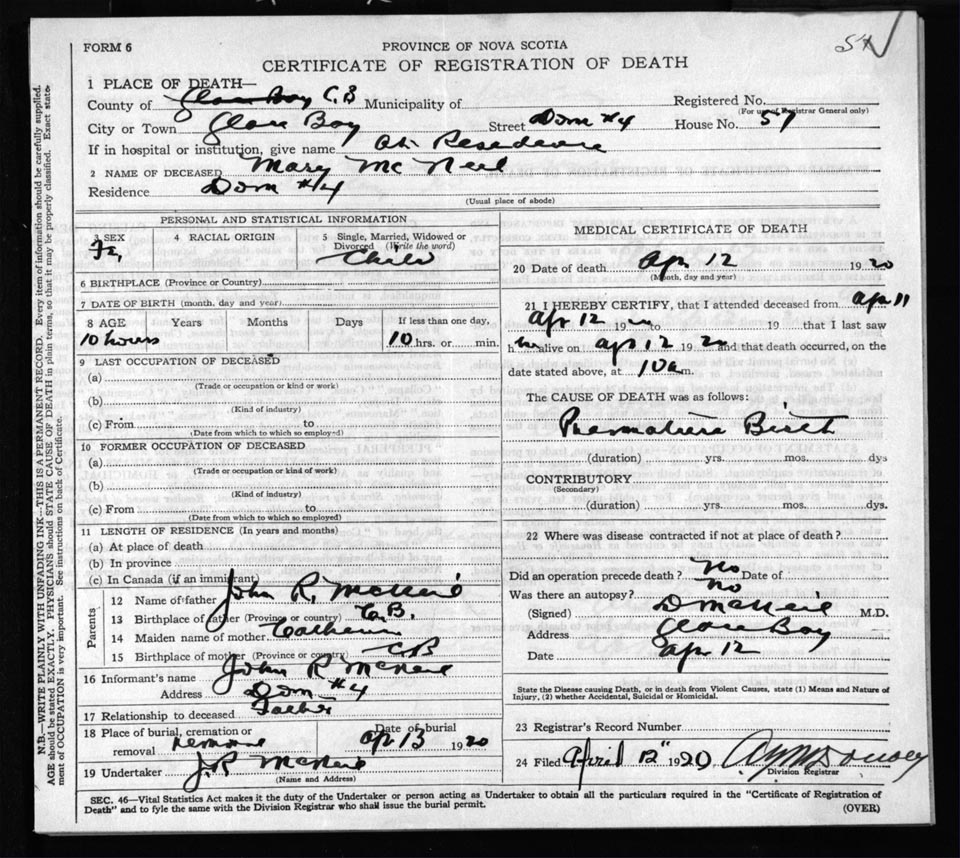 54
FORM 6
PROVINCE OF NOVA SCOTIA
CERTIFICATE OF REGISTRATION OF DEATH
1 PLACE OF DEATH—
County of Glace Bay C.B Municipality of
Registered No.
(For use of Registrar General only)
City or Town Glace Bay Street Dom #4 House No. 57
If in hospital or institution, give name At Residence
2 NAME OF DECEASED Mary McNeil
Residence Dom #4
(Usual place of abode)
PERSONAL AND STATISTICAL INFORMATION
3 SEX 4 RACIAL ORIGIN 5 Single, Married, Widowed or Divorced (Write the word)
F. Child
6 BIRTHPLACE (Province or Country)
7 DATE OF BIRTH (month, day and year)
8 AGE Years Months Days If less than one day,
10 hours 10 hrs. or min.
9 LAST OCCUPATION OF DECEASED
(a)
(Trade or occupation or kind or work)
(b)
(Kind of industry)
(c) From to
(Date from which to which so employed)
10 FORMER OCCUPATION OF DECEASED
(a)
(Trade or occupation or kind or work)
(b)
(Kind of industry)
(c) From to
(Date from which to which so employed)
11 LENGTH OF RESIDENCE (In years and months)
(a) At place of death
(b) In province
(c) In Canada (if an immigrant)
Parents
12 Name of father John R. McNeil
13 Birthplace of father (Province or country) C.B.
14 Maiden name of mother Calhoun
15 Birthplace of mother (Province or country) C.B
16 Informant's name John R McNeil
Address Dom #4
17 Relationship to deceased Father
18 Place of burial, cremation or removal Date of burial
Ap 13 1920
19 Undertaker J.R McNeil
(Name and Address)
MEDICAL CERTIFICATE OF DEATH
20 Date of death Apr 12 1920
(Month, day and year)
21 I HEREBY CERTIFY, that I attended deceased from Apr 11
Apr 12 1920 to 19 that I last saw
h alive on Apr 12 1920 and that death occurred, on the
date stated above, at 10 a m.
The CAUSE OF DEATH was as follows:
Premature Birth
(duration) yrs. mos. dys
CONTRIBUTORY
(Secondary)
(duration) yrs. mos. dys.
22 Where was disease contracted if not at place of death?
Did an operation precede death? No Date of
Was there an autopsy? No
(Signed) D McNeil M.D.
Address Glace Bay
Date Apr 12
State the Disease causing Death, or in death from Violent Causes, state (1) Means and Nature of
Injury, (2) whether Accidental, Suicidal or Homicidal.
23 Registrar's Record Number
24 Filed April 12" 1920
Division Registrar
SEC. 46—Vital Statistics Act makes it the duty of the Undertaker or person acting as Undertaker to obtain all the particulars required in the "Certificate of Registration of
Death" and to fyle the same with the Division Registrar who shall issue the burial permit. (OVER)
N.B.—WRITE PLAINLY WITH UNFADING INK—THIS IS A PERMANENT RECORD. Every item of information should be carefully supplied.
AGE should be stated EXACTLY. PHYSICIANS should STATE CAUSE OF DEATH in plain terms, so that it may be properly classified. Exact state-
ment of OCCUPATION is very important. See instructions on back of Certificate.